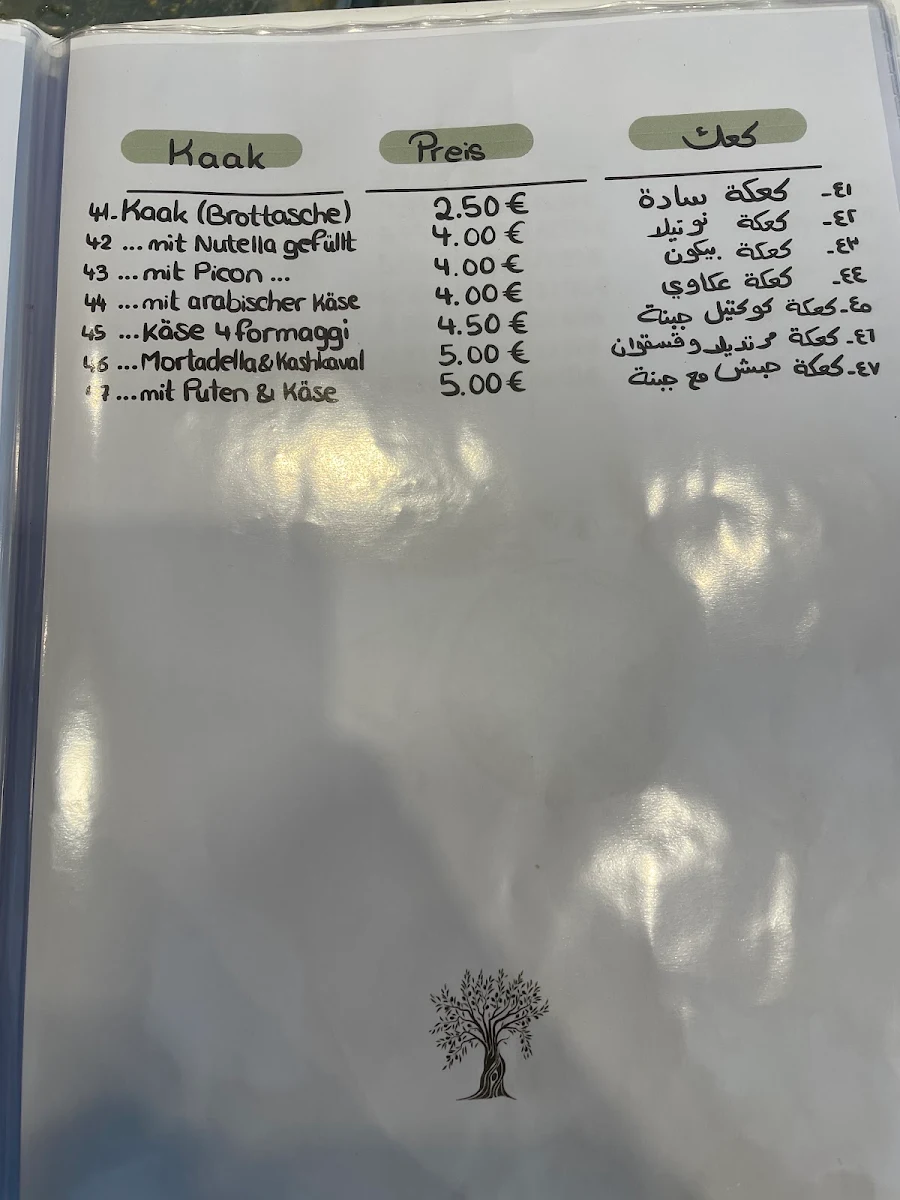 Kaak Preis كعك
41. Kaak (Brottasche) 2.50 € ٤١- كعكة سادة
42 ... mit Nutella gefüllt 4.00 € ٤٢- كعكة نوتيلا
43 ... mit Picon ... 4.00 € ٤٣- كعكة بيكون
44 ... mit arabischer Käse 4.00 € ٤٤- كعكة عكاوي
45 ... Käse 4 formaggi 4.50 € ٤٥- كعكة كوكتيل جبنة
46 ... Mortadella & Kashkaval 5.00 € ٤٦- كعكة مرتديلا وقسقوان
47 ... mit Puten & Käse 5.00 € ٤٧- كعكة حبش مع جبنة